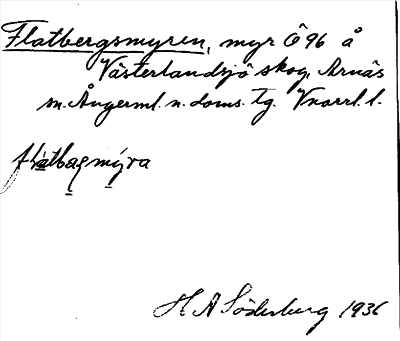 Flatbergsmyren, myr Ö 96 å
Västerlandsjö skog, Arnäs
sn. Ångerml. n. doms. Tg. Vnorrl. l.
flatbagmýra
H A Söderberg 1936